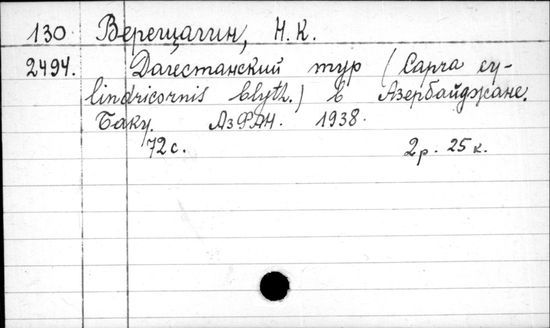 130 Верещагин, Н.К.
2494. Дагестанский тур (Capra cy-
lindricornis blyth.) в Азербайджане.
Баку. АзФАН. 1938.
72 с. 2 р. 25 к.